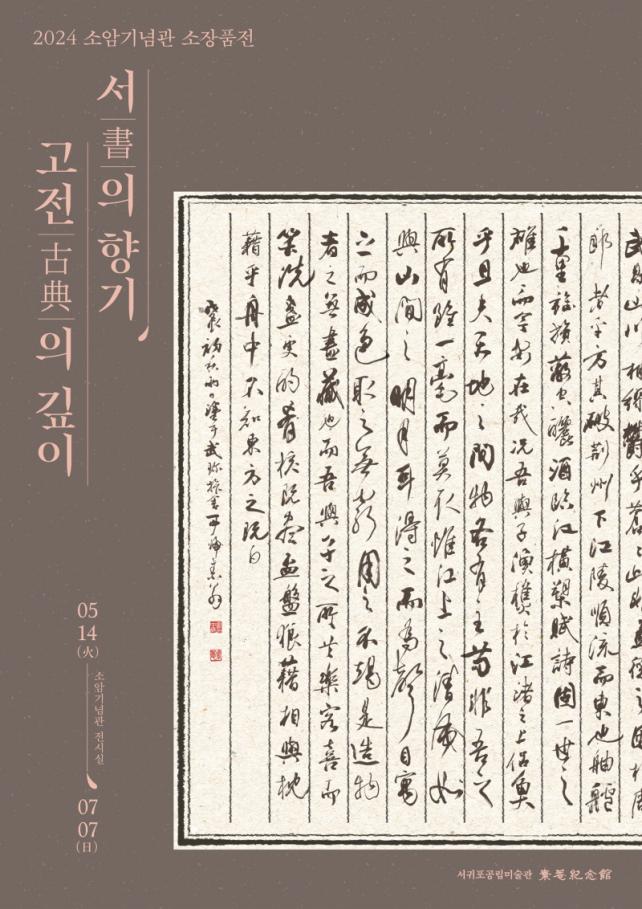 2024 소암기념관 소장품전
서書의 향기
고전古典의 깊이
05
14
(火)
소암기념관 전시실
07
07
(日)
郎者乎方其破荊州下江陵順流而東也舳艫
千里旌旗蔽空釃酒臨江橫槊賦詩固一世之
雄也而今安在哉況吾與子漁樵於江渚之上侶魚
乎且夫天地之間物各有主苟非吾之
所有雖一毫而莫取惟江上之清風
與山間之明月耳得之而為聲目寓
之而成色取之無禁用之不竭是造物
者之無盡藏也而吾與子之所共樂客喜而
笑洗盞更酌肴核既盡盃盤狼藉相與枕
藉乎舟中不知東方之既白
서귀포공립미술관 素菴紀念館